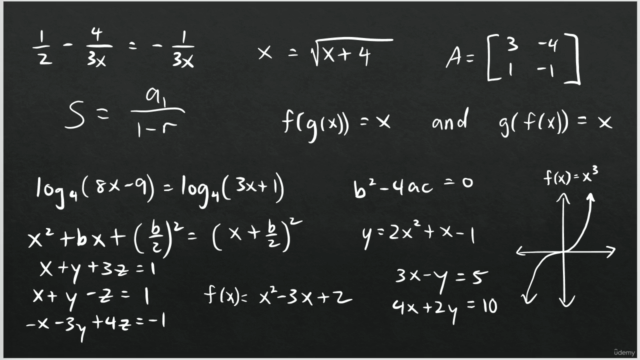 1/2 - 4/3x = - 1/3x
x = √(x+4)
A = [3 -4; 1 -1]
S = a₁/(1-r)
f(g(x)) = x and g(f(x)) = x
log₄(8x-9) = log₄(3x+1)
b² - 4ac = 0
f(x) = x³
x² + bx + (b/2)² = (x + b/2)²
y = 2x² + x - 1
x + y + 3z = 1
x + y - z = 1
-x - 3y + 4z = -1
f(x) = x² - 3x + 2
3x - y = 5
4x + 2y = 10
ûdemy